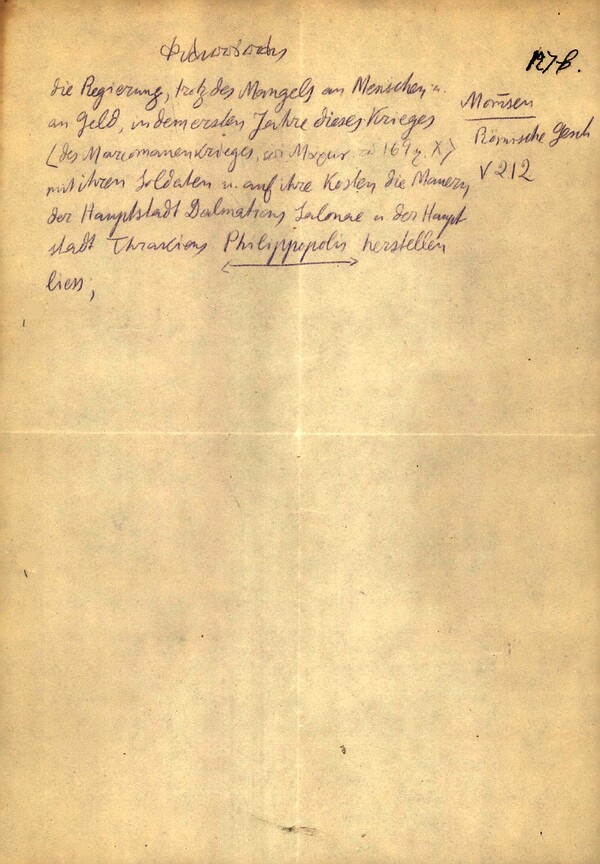 Φιλιππόπολις
127β.
die Regierung, trotz des Mangels an Menschen u.
an Geld, in dem ersten Jahre dieses Krieges
(des Marcomanenkrieges, 169 μ. Χ)
mit ihren Soldaten u. auf ihre Kosten die Mauern
der Hauptstadt Dalmatiens Salonae u der Haupt
stadt Thrakiens Philippopolis herstellen
liess,
Mom̄sen
Römische Gesch
V 212